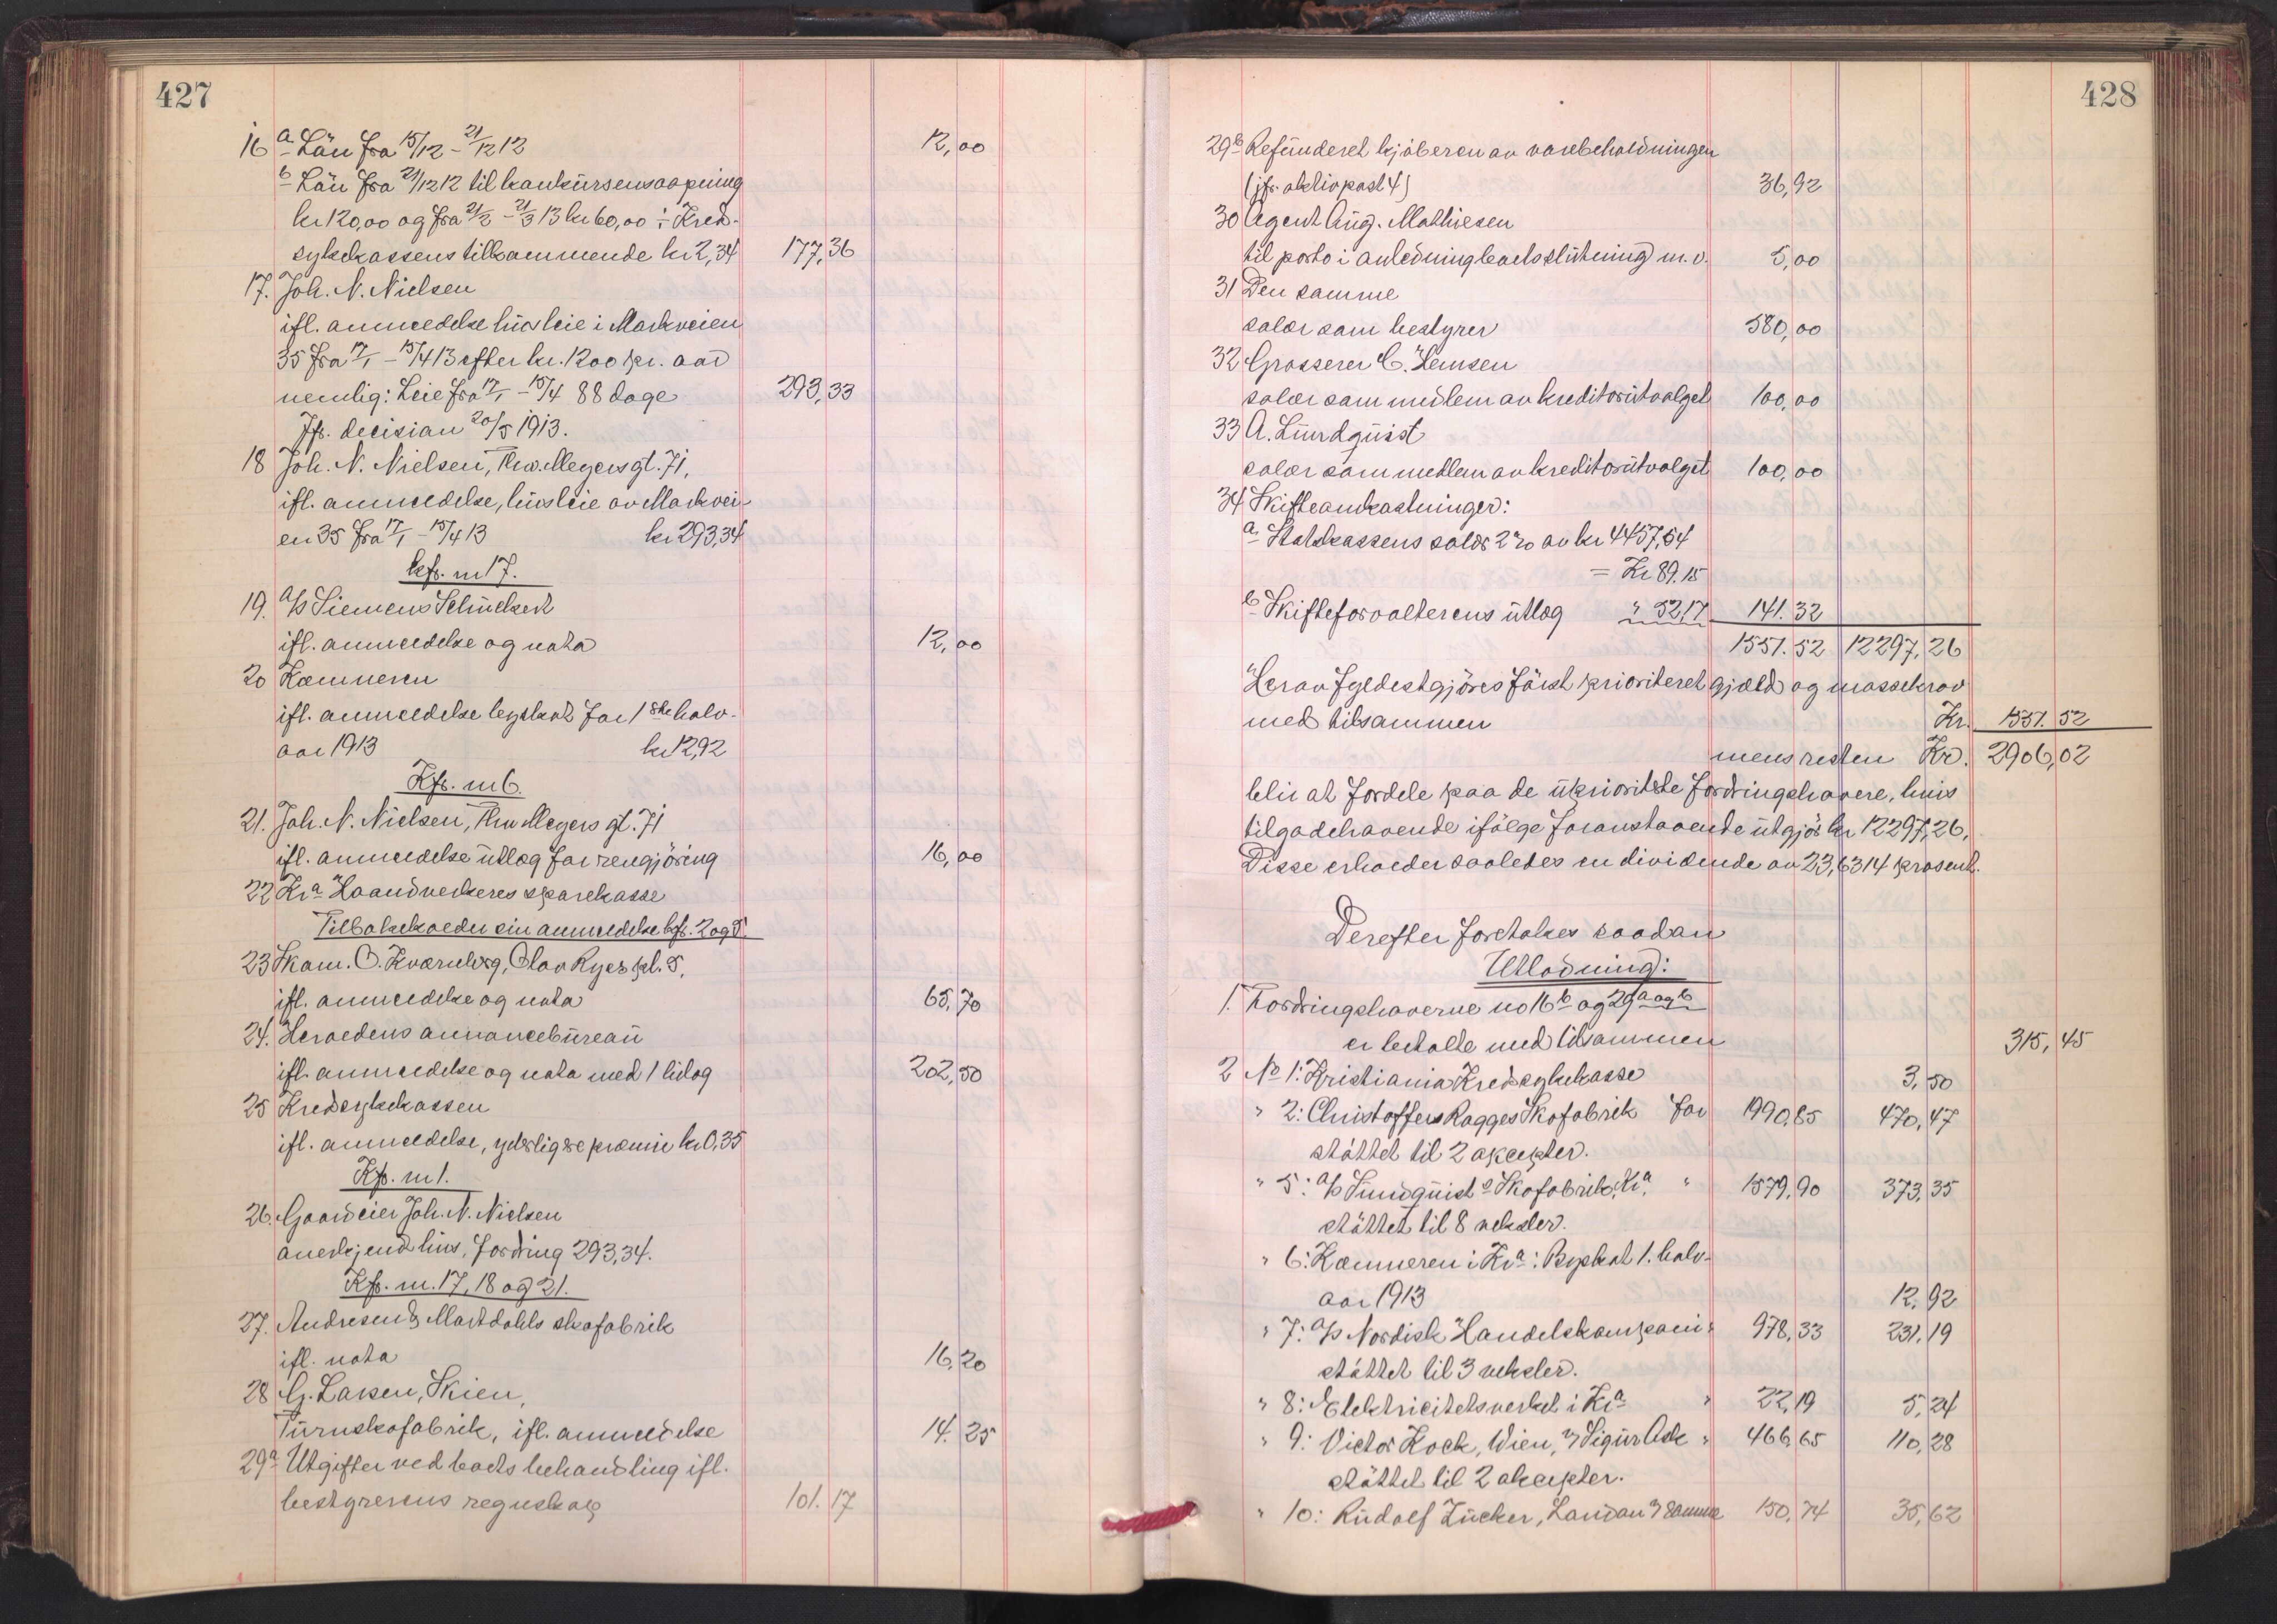 427
16 a Lön fra 15/12 – 21/12 12 12,00
b Lön fra 21/12 12 til konkursens aapning
kr 120,00 og fra 21/2 – 21/3 13 kr 60,00 ÷ Kred-
sykekassens tilkommende kr 2,34 177,36
17. Joh. N. Nielsen
ifl. anmeldelse husleie i Markveien
35 fra 17/1 – 15/4 13 efter kr. 1200 pr. aar
nemlig: Leie fra 17/1 – 15/4 88 dage 293,33
Jfr. decision 20/5 1913.
18 Joh. N. Nielsen, Thv. Meyersgt. 71,
ifl. anmeldelse, husleie av Markvei-
en 35 fra 17/1 – 15/4 13 kr 293,34
kfr. nr 17.
19. A/S Siemens Schuckert
ifl. anmeldelse og nota 12,00
20 Kæmneren
ifl. anmeldelse byskat for 1ste halv-
aar 1913 kr 12,92
Kfr. nr 6.
21. Joh. N. Nielsen, Thv Meyers gt. 71
ifl. anmeldelse utlæg for rengjöring 16,00
22 Kra Haandverkeres sparekasse
Tilbakekalder sin anmeldelse kfr. 2 og 5.
23 Skom. O. Kværnberg, Olav Ryes pl. 5,
ifl. anmeldelse og nota 65,70
24. Heroldens annoncebureau
ifl. anmeldelse og nota med 1 bilag 202,50
25 Kredssykekassen
ifl. anmeldelse, yderligere præmie kr 0,35
Kfr. nr 1.
26. Gaardeier Joh. N. Nielsen
anerkjend hus, fordring 293,34.
Kfr. nr. 17, 18 og 21.
27. Andresen & Martdahls skofabrik
ifl. nota 16,20
28 G. Larsen, Skien,
Turnskofabrik, ifl. anmeldelse 14.25
29a Utgifter ved boets behandling ifl.
bestyrerens regnskap 101.17
428
29b Refunderet kjöberen av varebeholdningen
(jfr. aktivpost 4) 36,92
30 Agent Aug. Mathiesen
til porto i anledning boets slutning m.v. 5,00
31 Den samme
salær som bestyrer 580,00
32 Grosserer C. Hemsen
salær som medlem av kreditorutvalget 100,00
33 A. Lundquist
salær som medlem av kreditorutvalget 100,00
34 Skifteomkostninger:
a. Statskassens salær 2 % av kr 4457,54
= Kr 89.15
b Skifteforvalterens utlæg " 52,17 141.32
1551.52 12297,26
Herav fyldestgjöres först prioriteret gjæld og massekrav
med tilsammen Kr. 1551.52
mens resten Kr. 2906,02
blir at fordele paa de uprioriterte fordringshavere, hvis
tilgodehavende ifölge foranstaaende utgjör kr 12297,26.
Disse erholder saaledes en dividende av 23,6314 prosent.
Derefter foretokes saadan
Utlodning:
1. Fordringshaverne no 16b og 29a og b
er betalte med tilsammen 315,45
2 No 1: Kristiania Kredssykekasse 3,50
" 2: Christoffer Ragges Skofabrik for 1990,85 470,47
stöttet til 2 aksepter.
" 5: A/S Lundquists Skofabrik, Kra. " 1579,90 373,35
stöttet til 8 veksler.
" 6: Kæmneren i Kra: Byskat 1. halv-
aar 1913 12,92
" 7: A/S Nordisk Handelskompani " 978,33 231,19
stöttet til 3 veksler.
" 8: Elektricitetsverket i Kra " 22,19 5,24
" 9: Victor Kock, Wien, v/ Sigur Ask " 466,65 110,28
stöttet til 2 aksepter.
" 10: Rudolf Zucker, Landau v/ samme 150,74 35,62